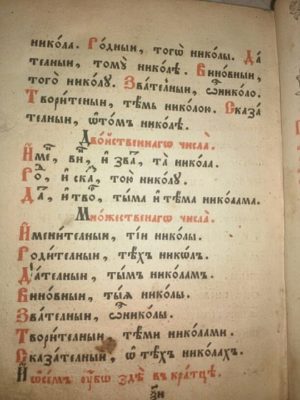 никола. Родныи, тогѡ николы. Да
телныи, томꙋ николѣ. Виновныи,
того николꙋ. Звателныи, ѽниколо.
Творителныи, тѣмъ николою. Сказа
телныи, ѡтомъ николѣ.
Двойственнагѡ числа.
И҆ме, ви, и҆ зва, та никола.
Ро, и҆ ска, тою николꙋ.
Да, и҆ тво, тыма и҆ тѣма николама.
Множественнагѡ числа.
И҆менителныи, тіи николы.
Родителныи, тѣхъ николъ.
Дателныи, тымъ николамъ.
Виновныи, тыѧ николы.
Звателныи, ѽниколы.
Творителныи, тѣми николами.
Сказателныи, ѡ тѣхъ николахъ.
И҆ ѡсемъ ᲂу҆бѡ здѣ въ кратцѣ.